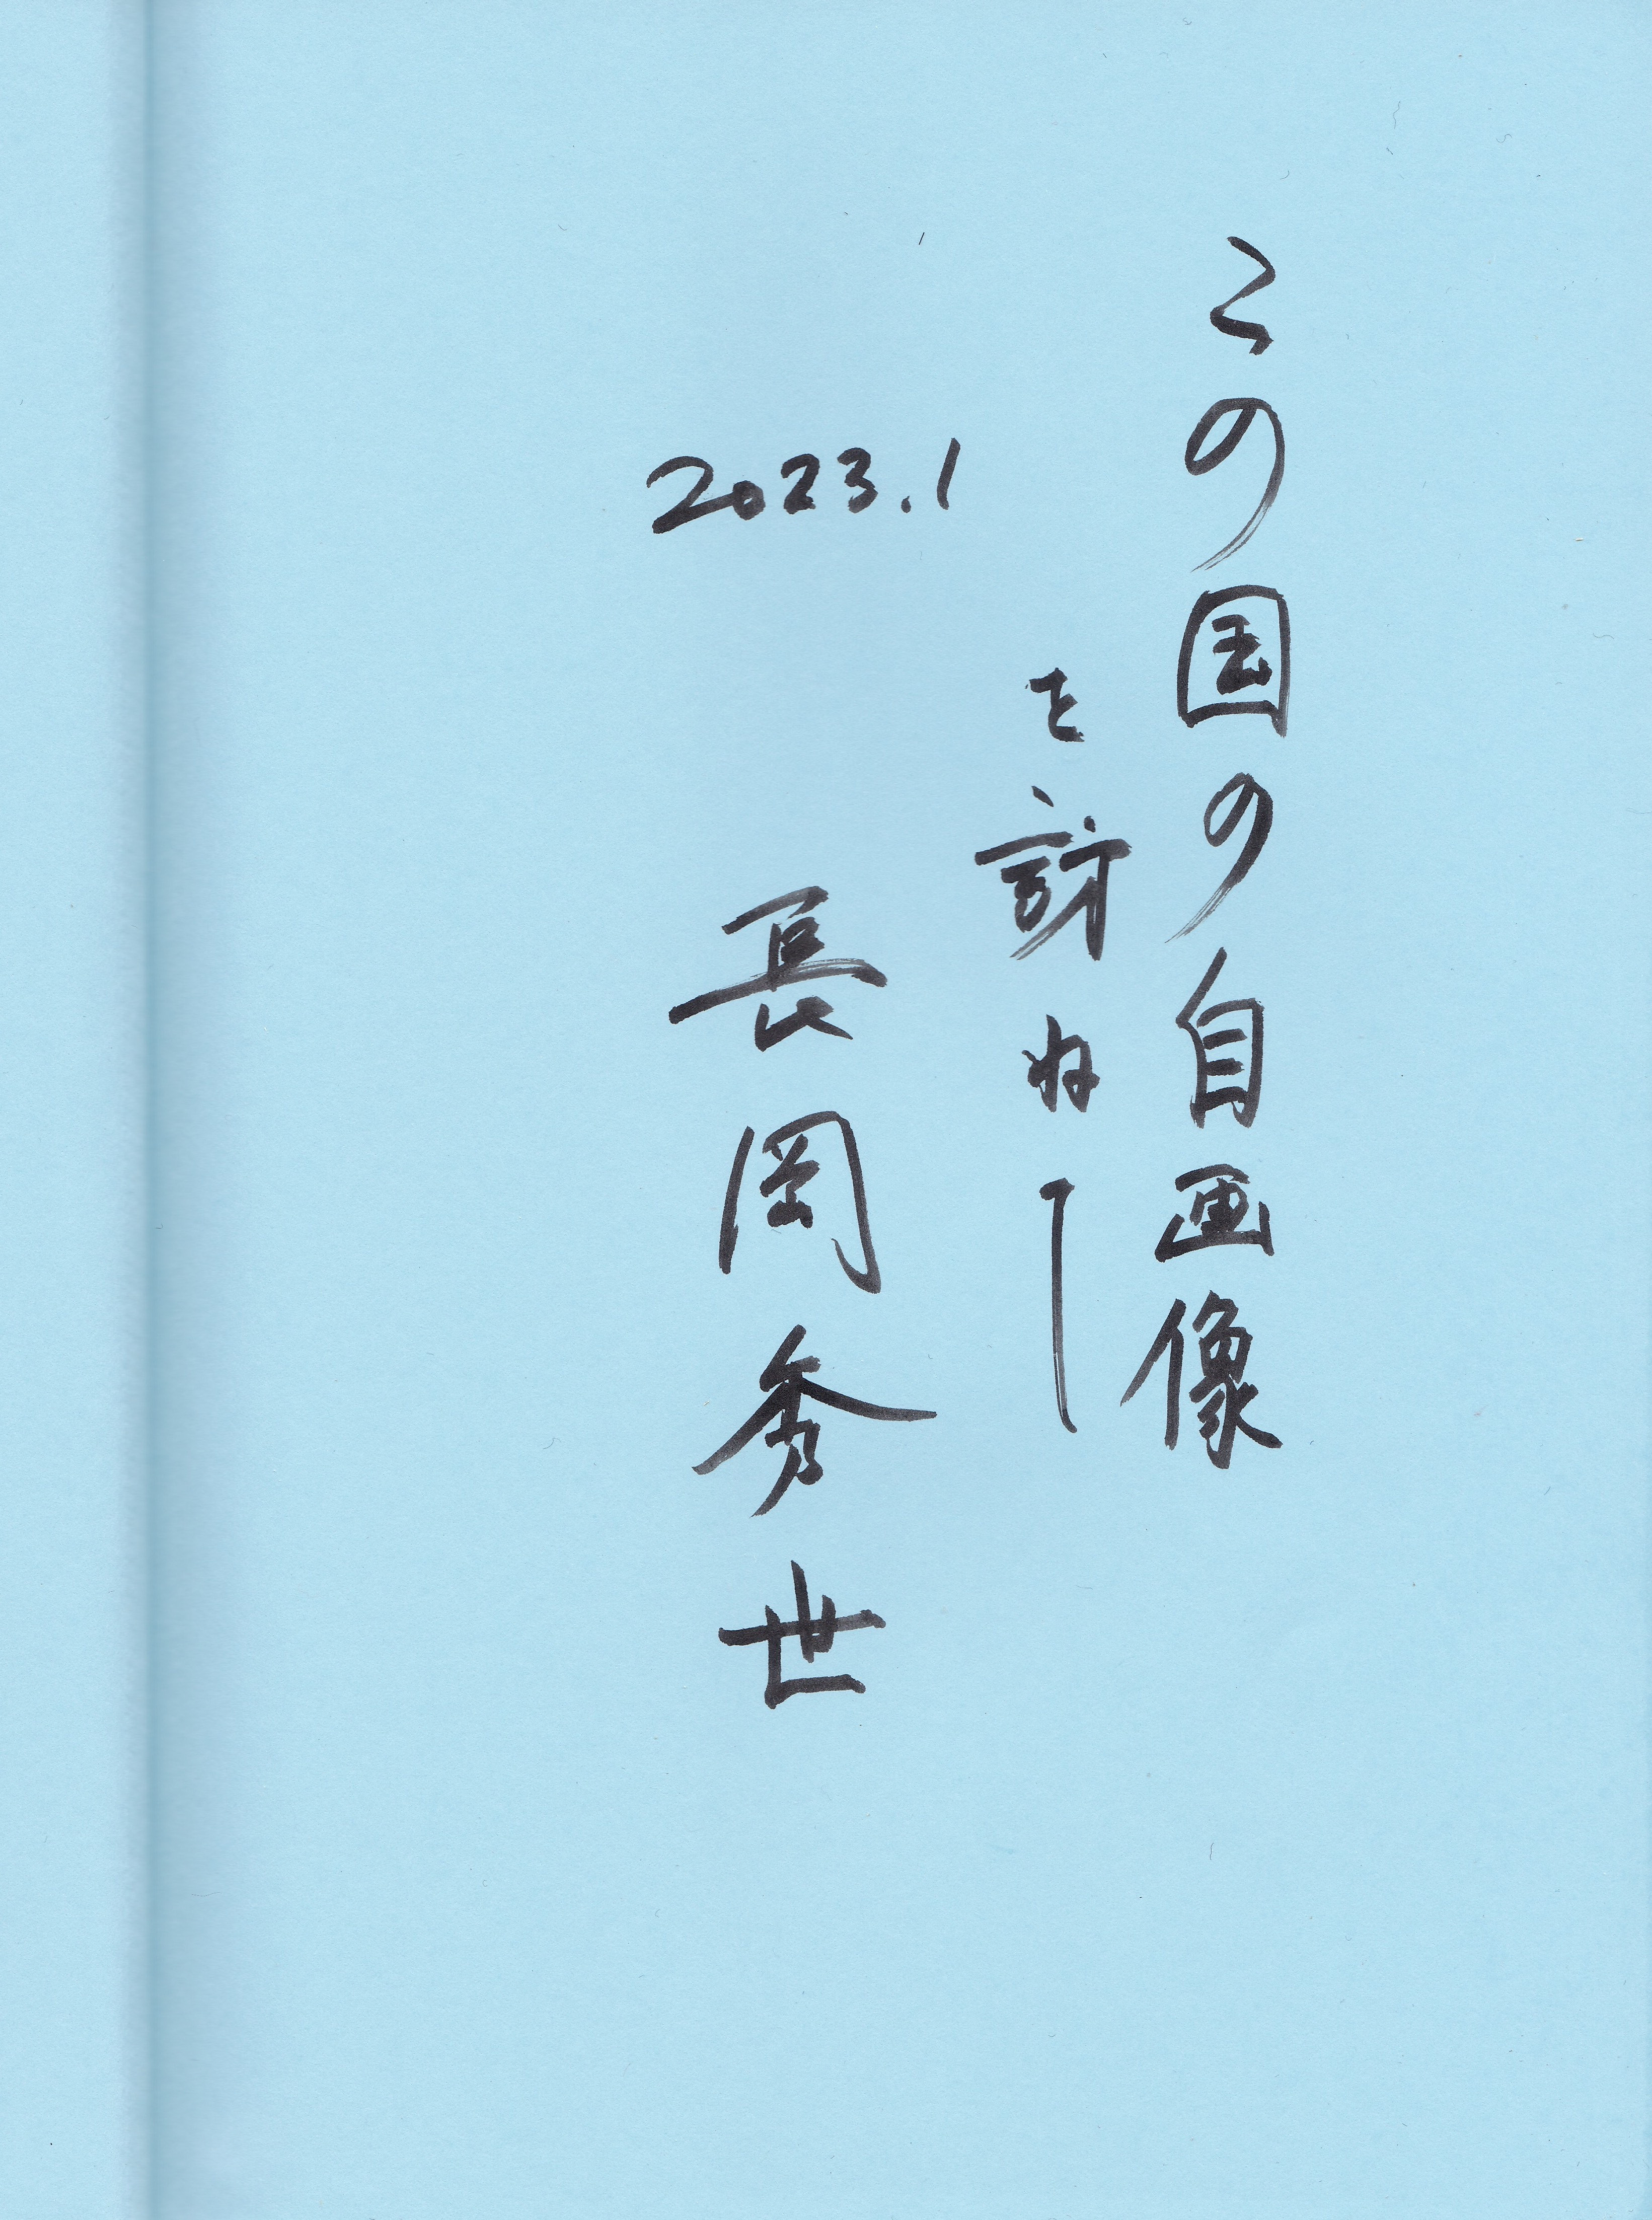 この国の自画像
を訪ねて
2023.1
長岡秀世